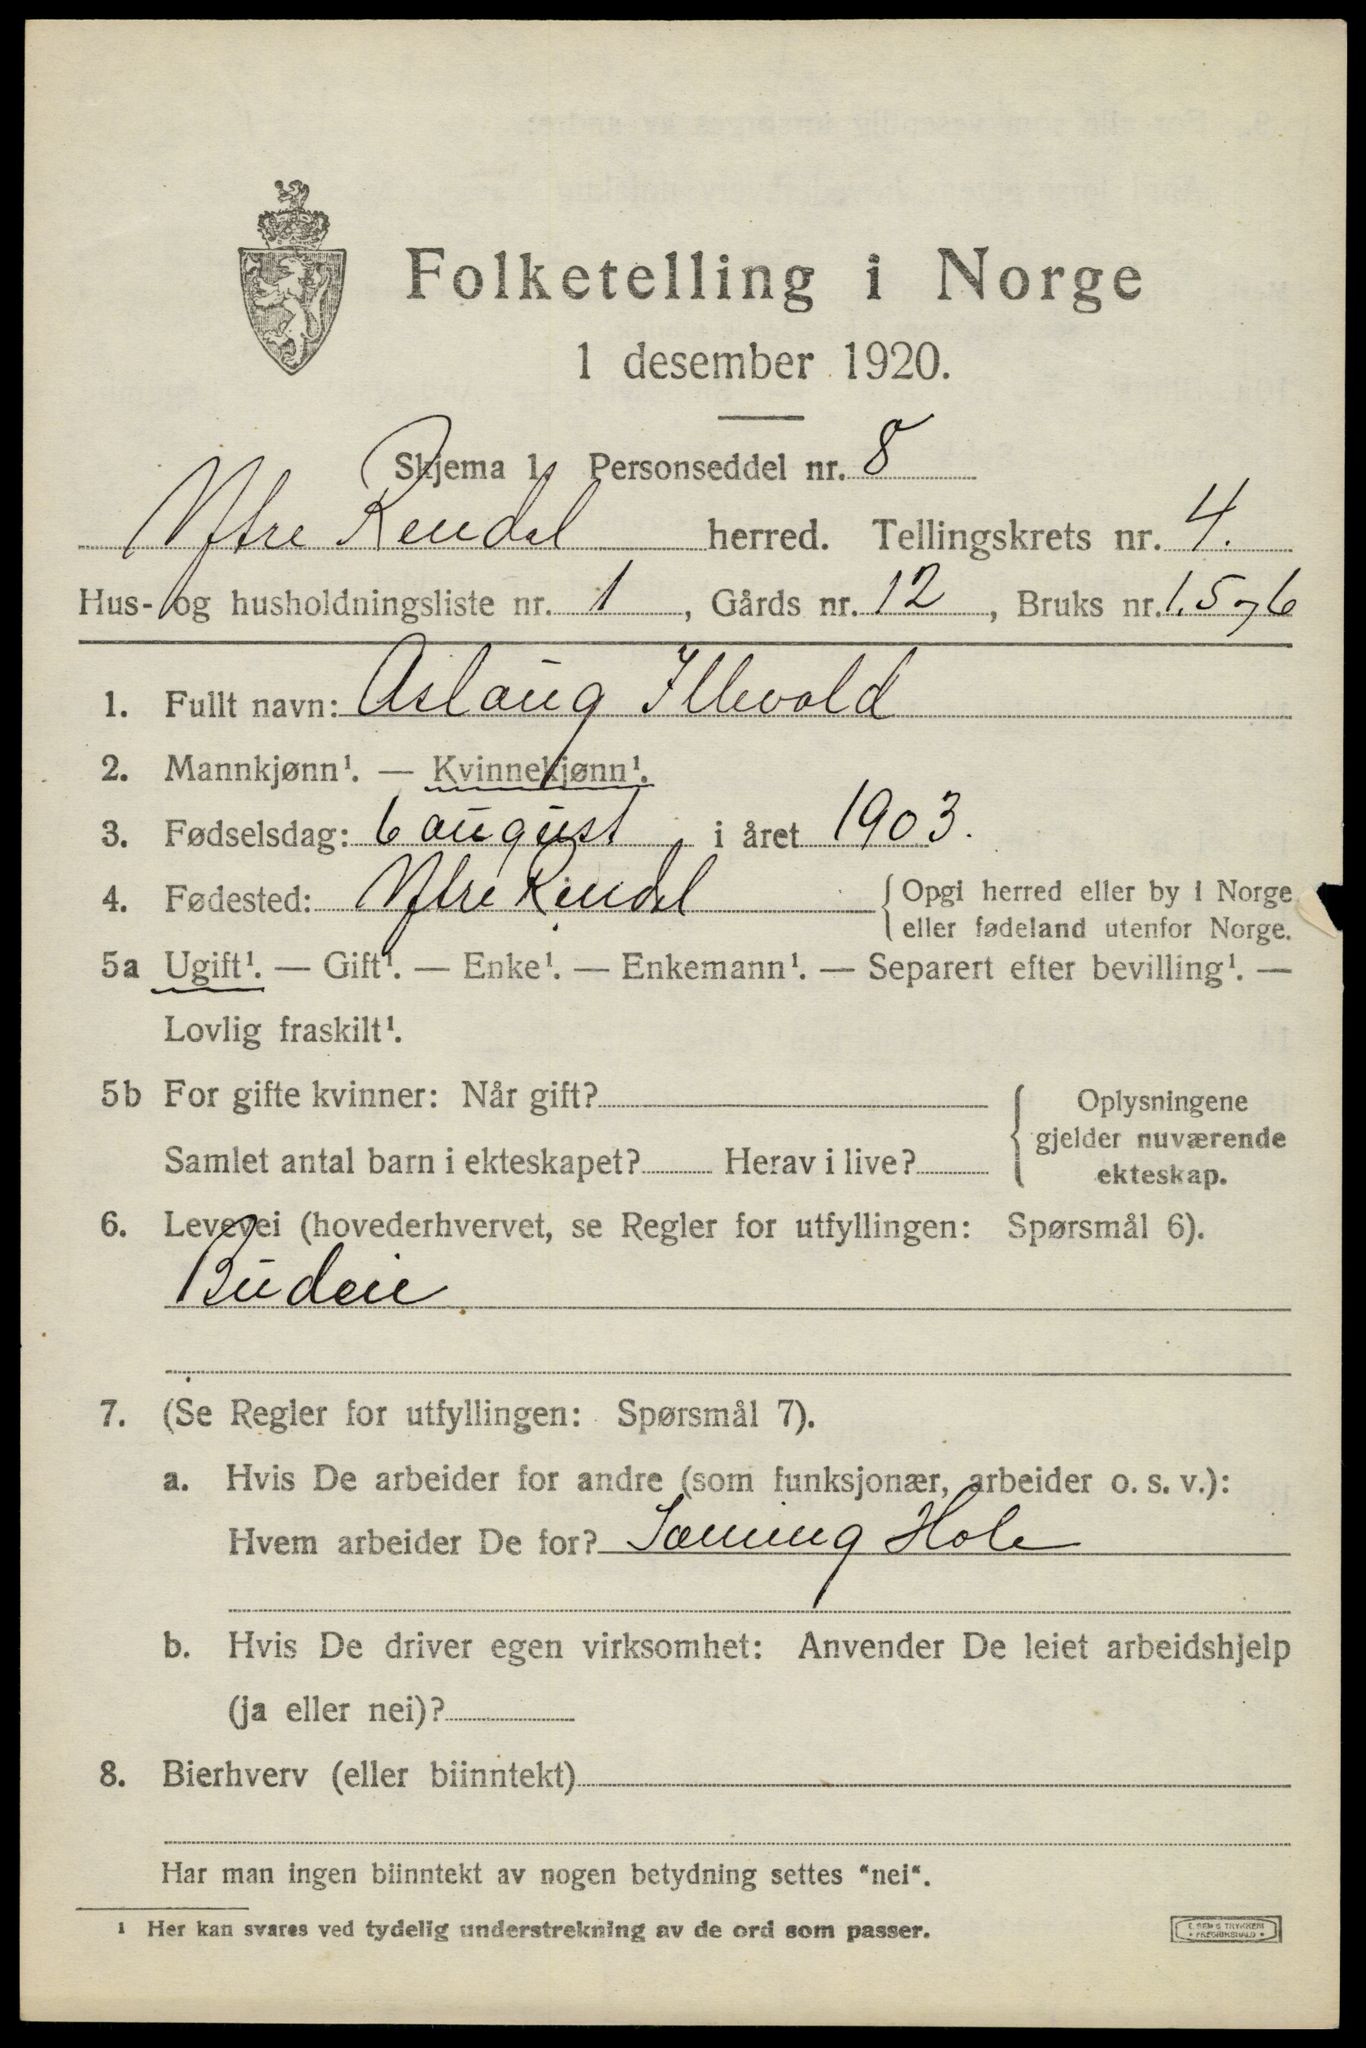 Folketelling i Norge
1 desember 1920.
Skjema 1. Personseddel nr. 8
Ytre Rendal herred. Tellingskrets nr. 4.
Hus- og husholdningsliste nr. 1, Gårds nr. 12, Bruks nr. 1.5 og 6
1. Fullt navn: Aslaug Illevold
2. Mannkjønn¹. — Kvinnekjønn¹.
3. Fødselsdag: 6 august i året 1903.
4. Fødested: Ytre Rendal { Opgi herred eller by i Norge
eller fødeland utenfor Norge.
5a Ugift¹. — Gift¹. — Enke¹. — Enkemann¹. — Separert efter bevilling¹. —
Lovlig fraskilt¹.
5b For gifte kvinner: Når gift? { Oplysningene
gjelder nuværende
Samlet antal barn i ekteskapet? Herav i live? ekteskap.
6. Levevei (hovederhvervet, se Regler for utfyllingen: Spørsmål 6).
Budeie
7. (Se Regler for utfyllingen: Spørsmål 7).
a. Hvis De arbeider for andre (som funksjonær, arbeider o. s. v.):
Hvem arbeider De for? Sæming Hole
b. Hvis De driver egen virksomhet: Anvender De leiet arbeidshjelp
(ja eller nei)?
8. Bierhverv (eller biinntekt)
Har man ingen biinntekt av nogen betydning settes "nei".
¹ Her kan svares ved tydelig understrekning av de ord som passer.
E. SEM'S TRYKKERI
FREDRIKSHALD